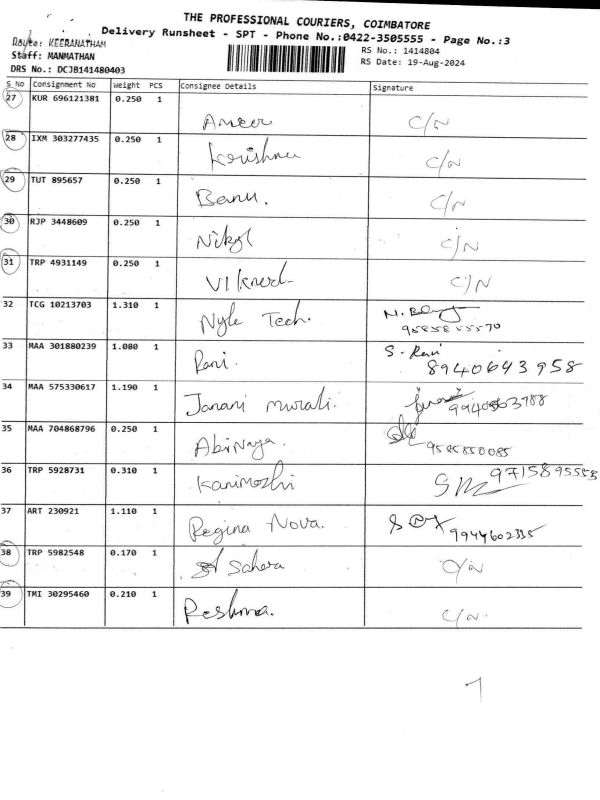 THE PROFESSIONAL COURIERS, COIMBATORE
Delivery Runsheet - SPT - Phone No.:0422-3505555 - Page No.:3
Route: KEERANATHAM
RS No.: 1414804
Staff: MANMATHAN
RS Date: 19-Aug-2024
DRS No.: DCJB141480403
S No Consignment No Weight PCS Consignee Details Signature
27 KUR 696121381 0.250 1 Ameer C/N
28 IXM 303277435 0.250 1 Korishna C/N
29 TUT 895657 0.250 1 Banu. C/N
30 RJP 3448609 0.250 1 C/N
31 TRP 4931149 0.250 1 C/N
32 TCG 10213703 1.310 1 Nyle Tech.
33 MAA 301880239 1.080 1 Rani. S. Rani
8940643958
34 MAA 575330617 1.190 1 Janani Murali.
35 MAA 704868796 0.250 1 Abinaya.
9585850085
36 TRP 5928731 0.310 1 Kanimozhi
37 ART 230921 1.110 1 Regina Nova.
9944602335
38 TRP 5982548 0.170 1 Sahara C/N
39 TMI 30295460 0.210 1 Reshma. C/N.